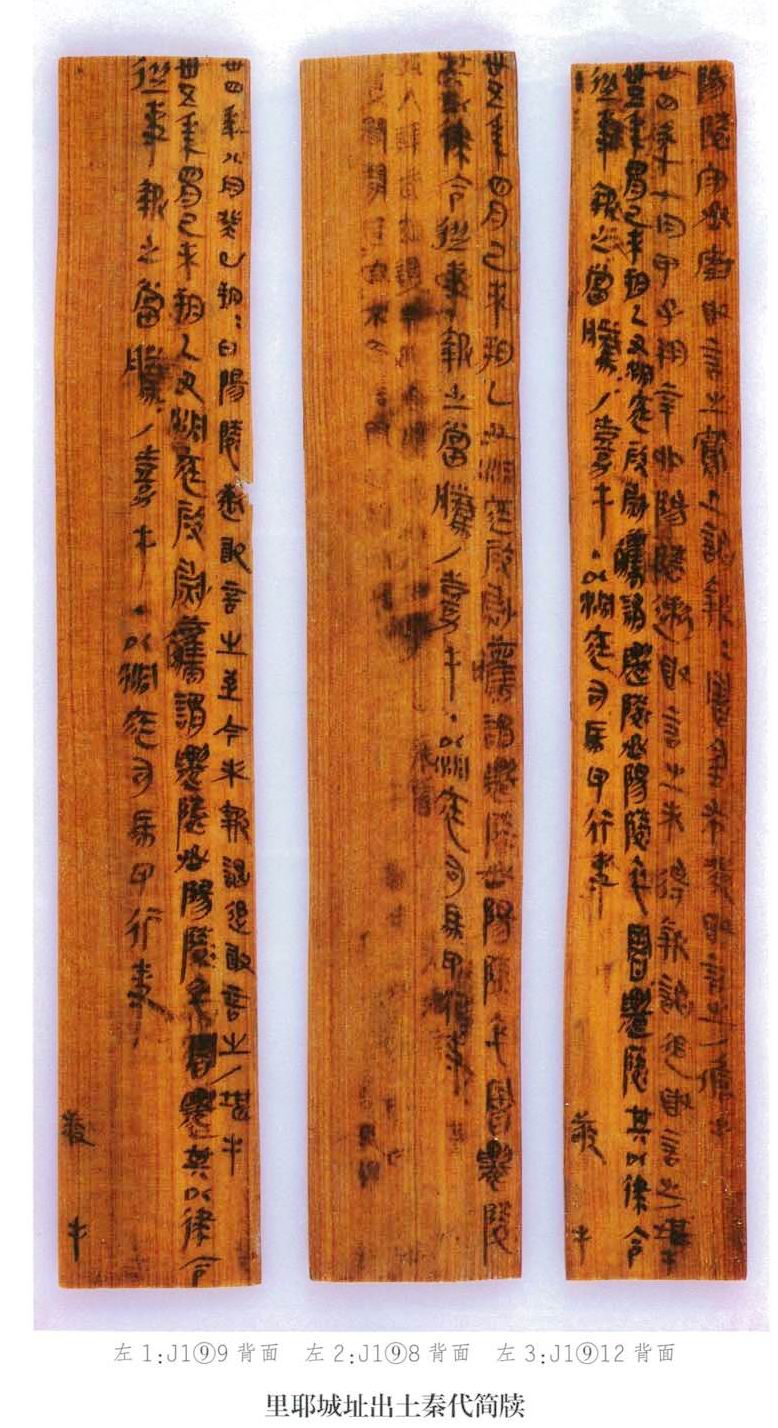 卅四年八月癸巳朔=日陽陵遬敢言之至今未報謁追敢言之/堪手
卅五年四月己未朔乙丑洞庭叚尉觿謂遷陵丞陽陵卒署遷其以律令
從事報之當騰/嘉手·以洞庭司馬印行事
敬手
卅五年四月己未朔乙丑洞庭叚尉觿謂遷陵丞陽陵卒署遷陵
其以律令從事報之當騰/嘉手·以洞庭司馬印行事
陽陵守丞廚敢言之寫上謁報=署金布發敢言之/儋手
卅四年七月甲子朔辛卯陽陵遬敢言之未得報謁追敢言之/堪手
卅五年四月己未朔乙丑洞庭叚尉觿謂遷陵丞陽陵卒署遷陵其以律令
從事報之當騰/嘉手·以洞庭司馬印行事
敬手
左1:J1⑨9背面 左2:J1⑨8背面 左3:J1⑨12背面
里耶城址出土秦代简牍